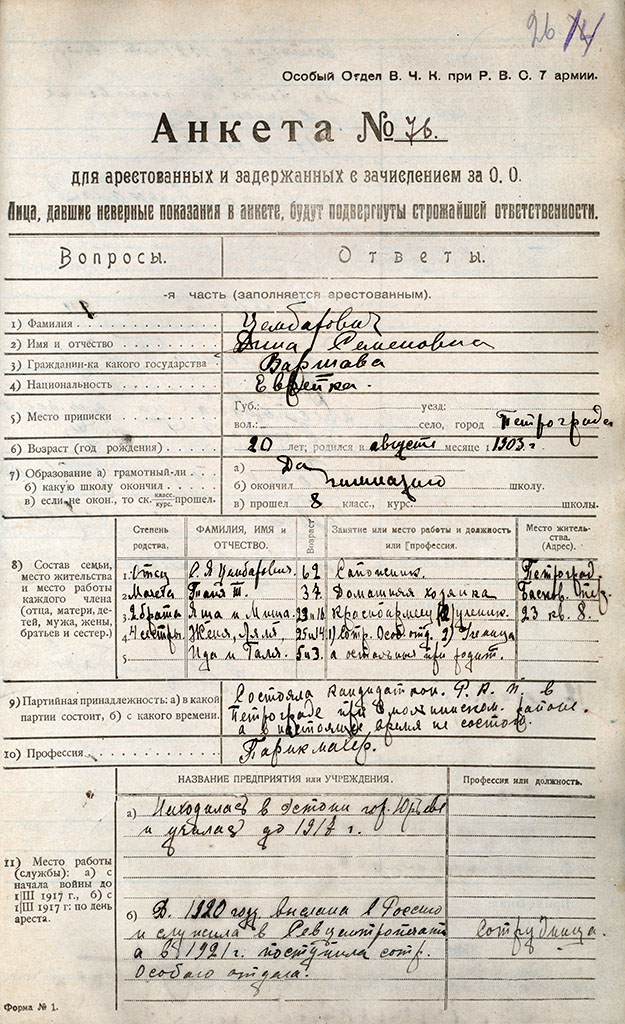 26 74
Особый Отдел В. Ч. К. при Р. В. С. 7 армии.
Анкета № 76.
для арестованных и задержанных с зачислением за О. О.
Лица, давшие неверные показания в анкете, будут подвергнуты строжайшей ответственности.
Вопросы. Ответы.
-я часть (заполняется арестованным).
1) Фамилия Цембарович
2) Имя и отчество Дина Семеновна
3) Гражданин-ка какого государства Варшава
4) Национальность Еврейка.
5) Место приписки Губ.: уезд:
вол.: село, город Петроград
6) Возраст (год рождения) 20 лет; родился в августе месяце 1903 г
7) Образование а) грамотный-ли а) Да
б) какую школу окончил б) окончил гимназию школу.
в) если не окон., то ск. класс. курс. прошел. в) прошел 8 класс., курс. школы.
8) Состав семьи, место жительства и место работы каждого члена (отца, матери, детей, мужа, жены, братьев и сестер.)
Степень родства. ФАМИЛИЯ, ИМЯ и ОТЧЕСТВО. Возраст Занятие или место работы и должность или профессия. Место жительства. (Адрес).
1. Отец С. Я Цембарович. 62 Сапожник. Петроград.
2. 37 Домашная хозяйка
3. 2 брата Яша и Миша. и 16 Красноармеец 2) ученик. 23 кв. 8.
4. 4 сестры. Женя, 25 и 14 1) сотр. Особ отд. 2) Ученица
5 Ида и Галя. 5 и 3. а остальные при родит.
9) Партийная принадлежность: а) в какой партии состоит, б) с какого времени.
Состояла кандидаткой. Р. К. П. в
Петрограде при Смольнинском районе.
а в настоящее время не состою.
10) Профессия Парикмахер.
НАЗВАНИЕ ПРЕДПРИЯТИЯ или УЧРЕЖДЕНИЯ. Профессия или должность.
11) Место работы (службы): а) с начала войны до 1|III 1917 г., б) с 1|III 1917 г: по день ареста.
а) Находилась в Эстони гор. Юрьеве
и училась до 1917 г.
б) В. 1920 году выслана в Россию
и служила в Севцентропечати Сотрудница.
а в 1921 г. поступила сотр.
Особого отдела.
Форма № 1.